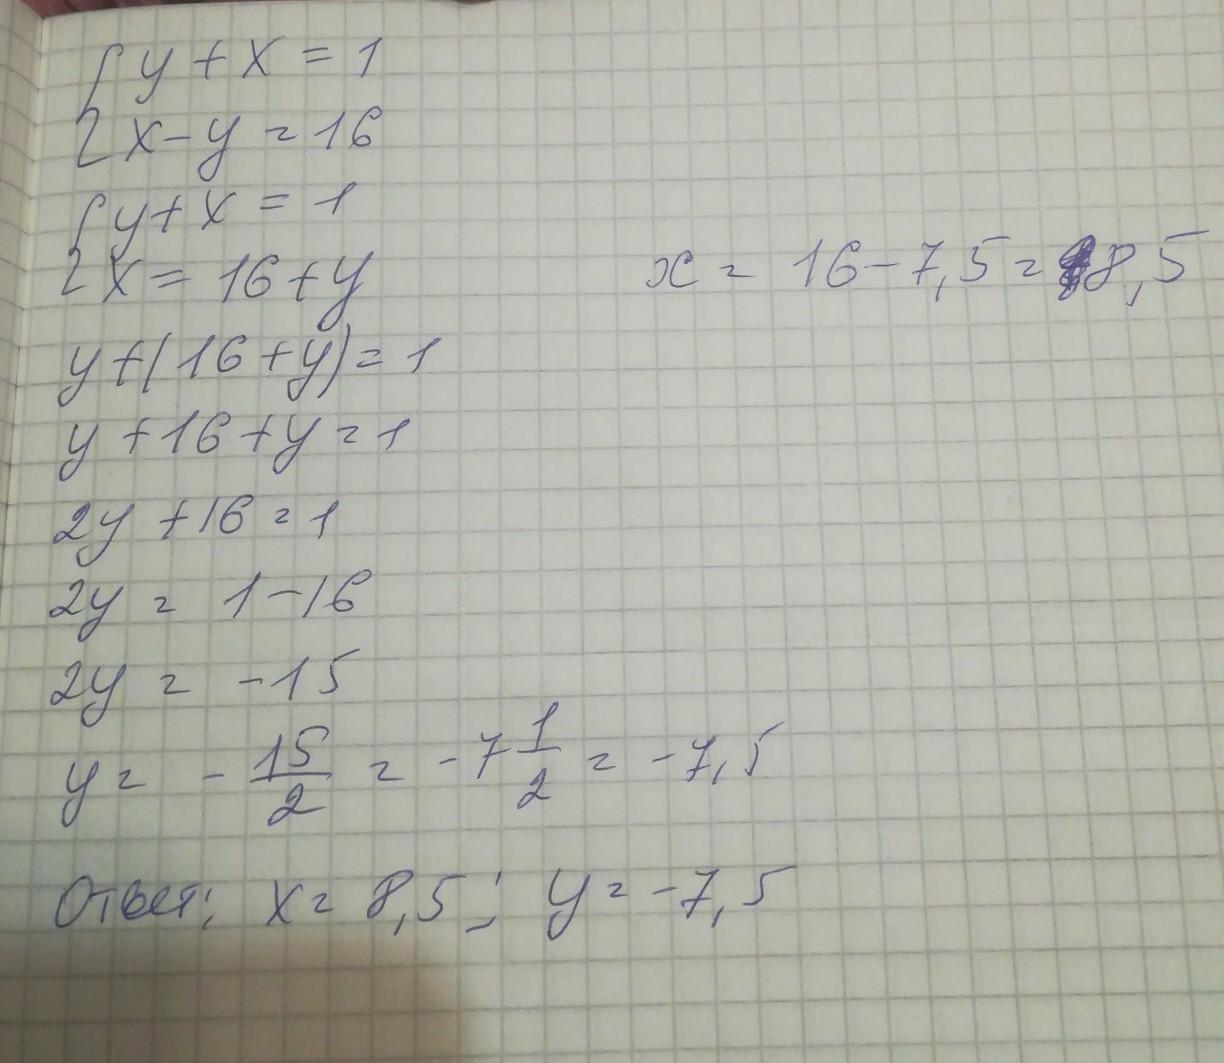 { y + x = 1
{ x - y = 16
{ y + x = 1
{ x = 16 + y
x = 16 - 7,5 = 8,5
y + (16 + y) = 1
y + 16 + y = 1
2y + 16 = 1
2y = 1 - 16
2y = -15
y = - 15/2 = -7 1/2 = -7,5
Ответ: x = 8,5; y = -7,5